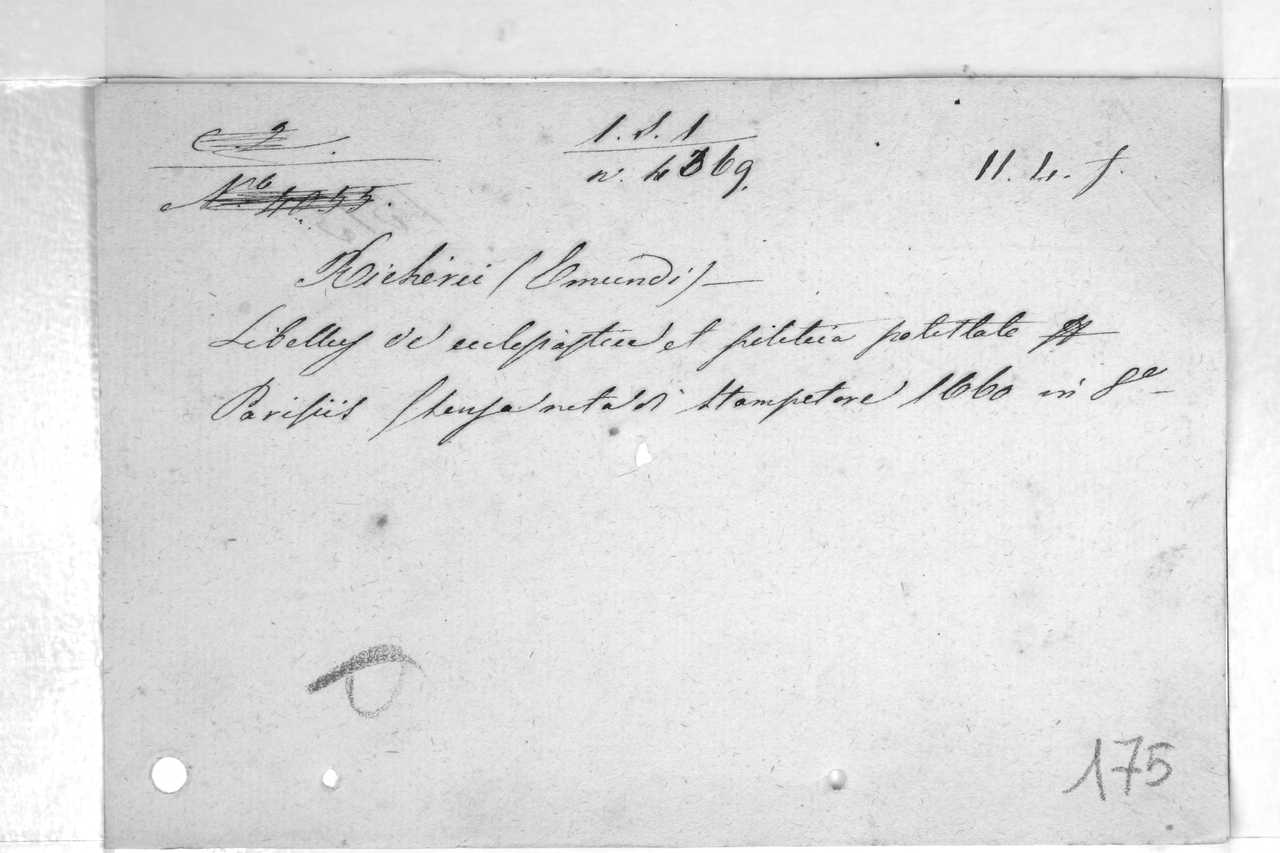 C 2.
1. S. 1
Nro 4055.
n. 4369.
11. 4. f.
Richerii (Emundi) —
Libellus de ecclesiastica et politica potestate
Parisiis (senza nota di stampatore 1660 in 8º
175